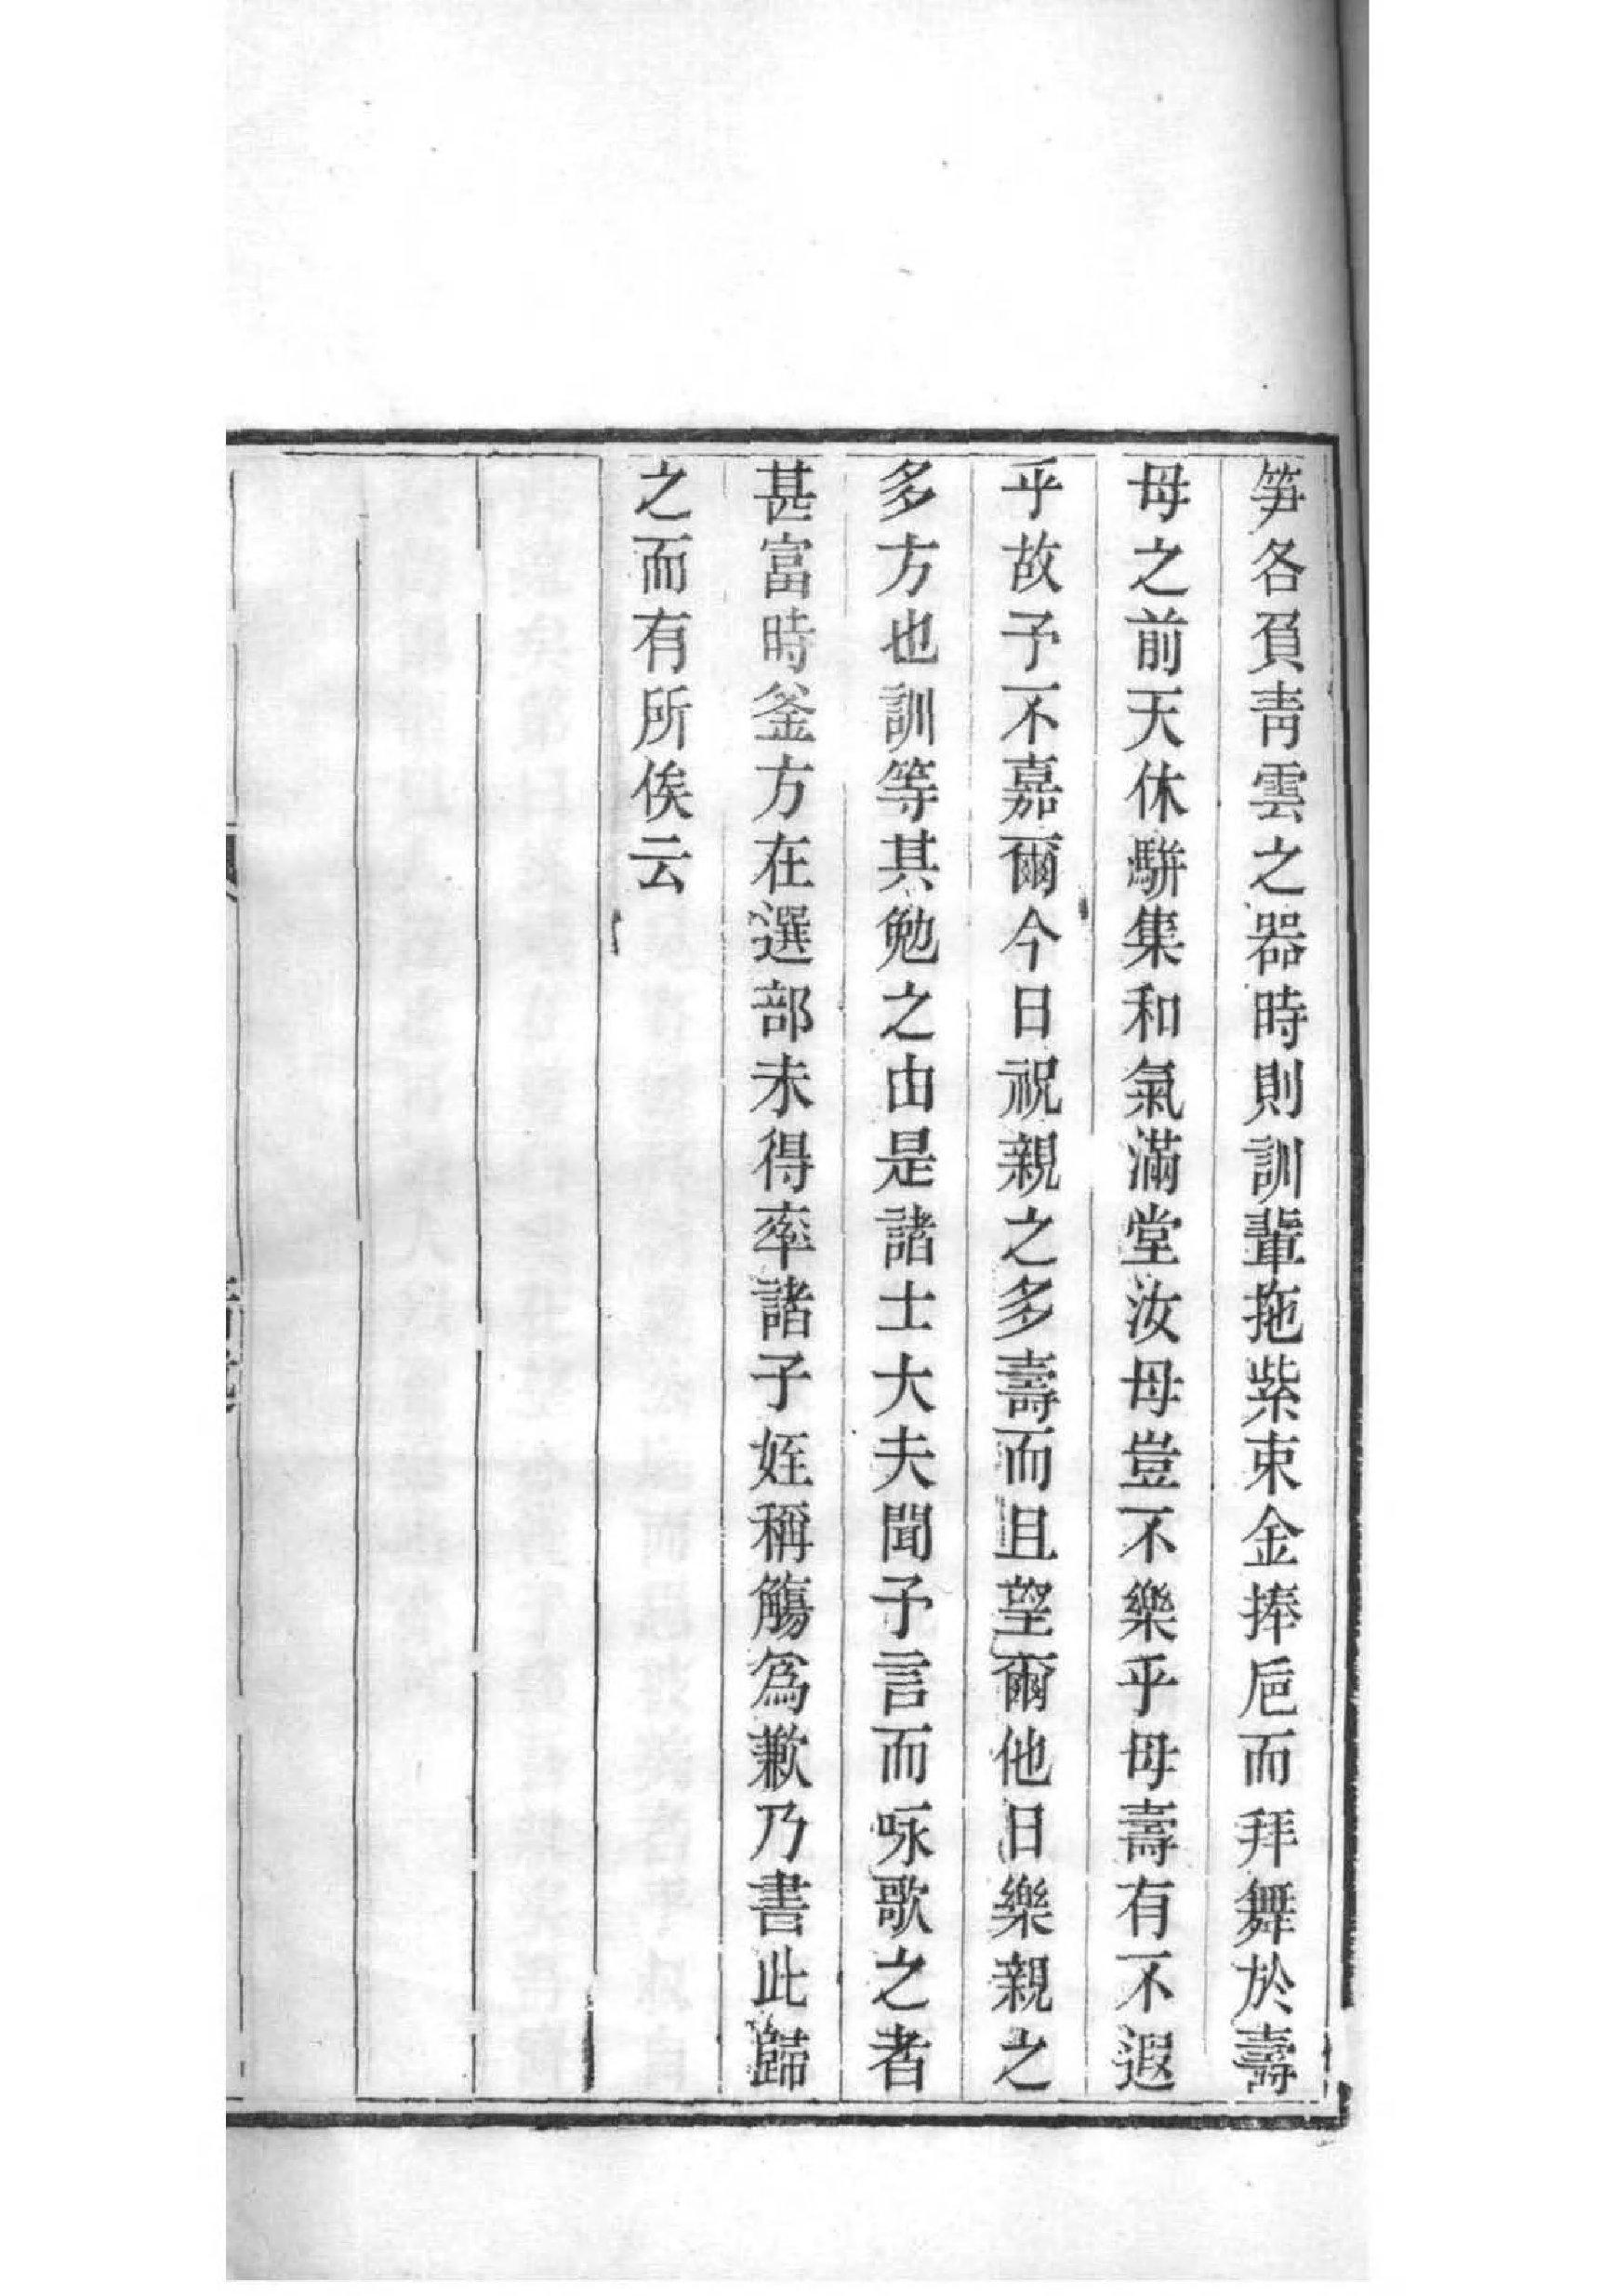 笋各負靑雲之器時則訓輩拖紫束金捧巵而拜舞於壽
母之前天休駢集和氣滿堂汝母豈不樂乎母壽有不遐
乎故予不嘉爾今日祝親之多壽而且望爾他日樂親之
多方也訓等其勉之由是諸士大夫聞予言而咏歌之者
甚富時釜方在選部未得率諸子姪稱觴爲歉乃書此歸
之而有所俟云